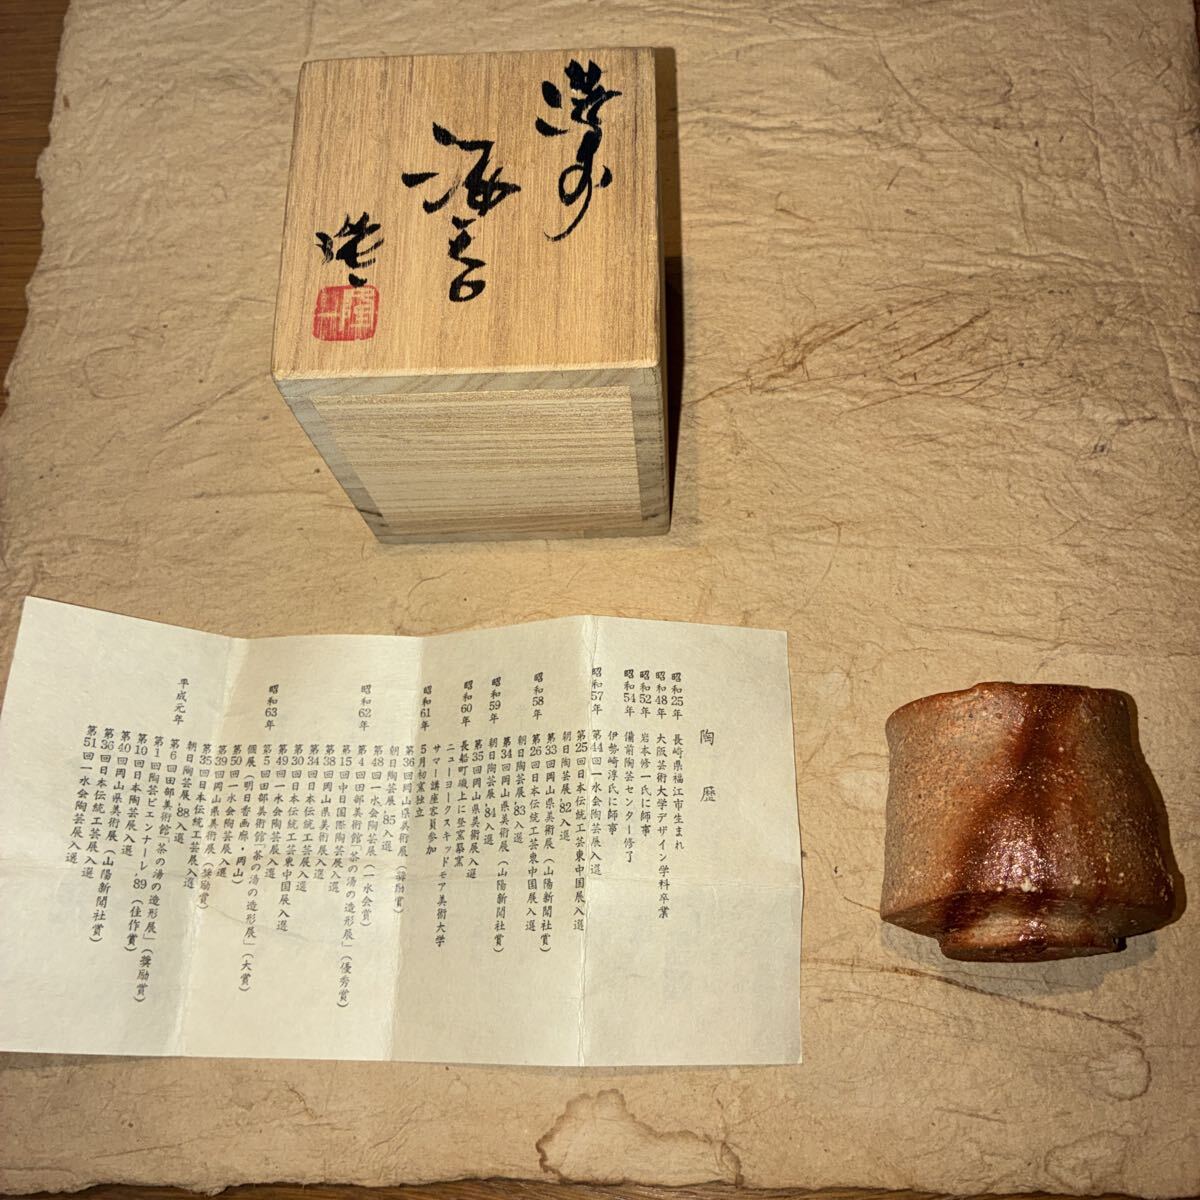 備前
酒呑
隆一
陶歴
昭和25年 長崎県福江市生まれ
昭和48年 大阪芸術大学デザイン学科卒業
昭和52年 岩本修一氏に師事
昭和54年 備前陶芸センター修了
伊勢崎淳氏に師事
昭和57年 第44回一水会陶芸展入選
第25回日本伝統工芸東中国展入選
朝日陶芸展'82入選
昭和58年 第33回岡山県美術展(山陽新聞社賞)
第26回日本伝統工芸東中国展入選
朝日陶芸展'83入選
昭和59年 第34回岡山県美術展(山陽新聞社賞)
朝日陶芸展'84入選
第35回岡山県美術展入選
昭和60年 長船町磯上に登窯築窯
ニューヨークスキッドモア美術大学
サマー講座客員参加
昭和61年 5月初窯独立
第36回岡山県美術展(奨励賞)
朝日陶芸展'85入選
第48回一水会陶芸展(一水会賞)
昭和62年 第4回田部美術館「茶の湯の造形展」(優秀賞)
第15回中日国際陶芸展入選
第38回岡山県美術展入選
第34回日本伝統工芸展入選
第30回日本伝統工芸東中国展入選
第49回一水会陶芸展入選
昭和63年 第5回田部美術館「茶の湯の造形展」(大賞)
個展(明日香画廊・岡山)
第50回一水会陶芸展入選
第39回岡山県美術展(奨励賞)
第35回日本伝統工芸展入選
朝日陶芸展'88入選
平成元年 第6回田部美術館「茶の湯の造形展」(奨励賞)
第1回陶芸ビエンナーレ'89(佳作賞)
第10回日本陶芸展入選
第40回岡山県美術展(山陽新聞社賞)
第36回日本伝統工芸展入選
第51回一水会陶芸展入選